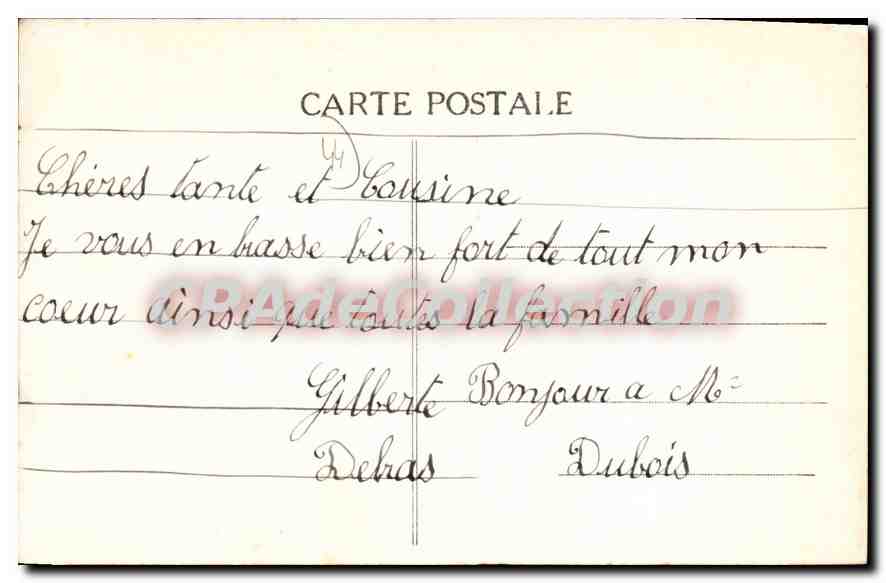 CARTE POSTALE
44
Chères tante et Cousine
Je vous en brasse bien fort de tout mon
coeur ainsi que toutes la famille
CPAdeCollection
Gilberte Bonjour a M=
Debras Dubois